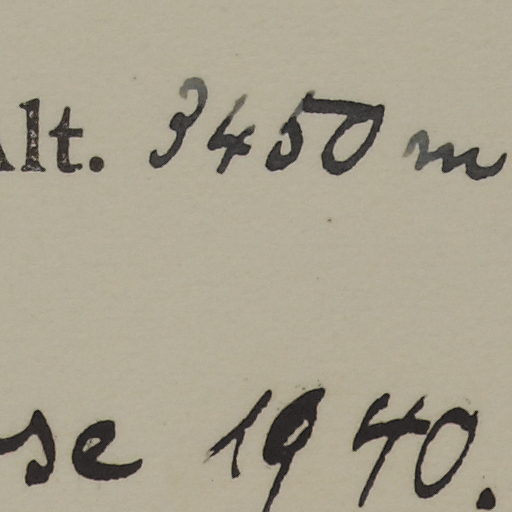 Alt. 3450 m
se 1940.